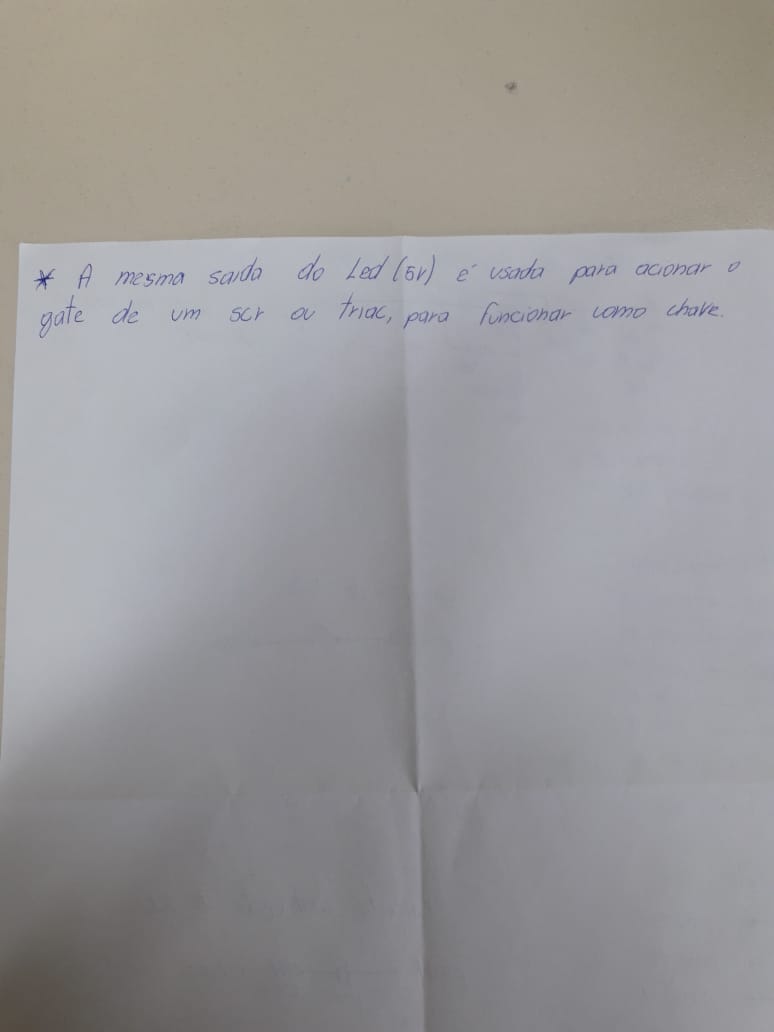 * A mesma saída do Led (5V) é usada para acionar o
gate de um scr ou triac, para funcionar como chave.